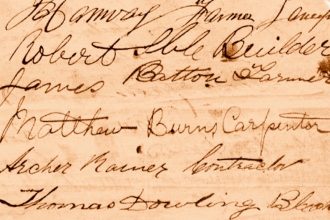 Ramsay Farmer
Robert Ible Builder
James Batton Farmer
Matthew Burns Carpenter
Archer Rainer Contractor
Thomas Dowling